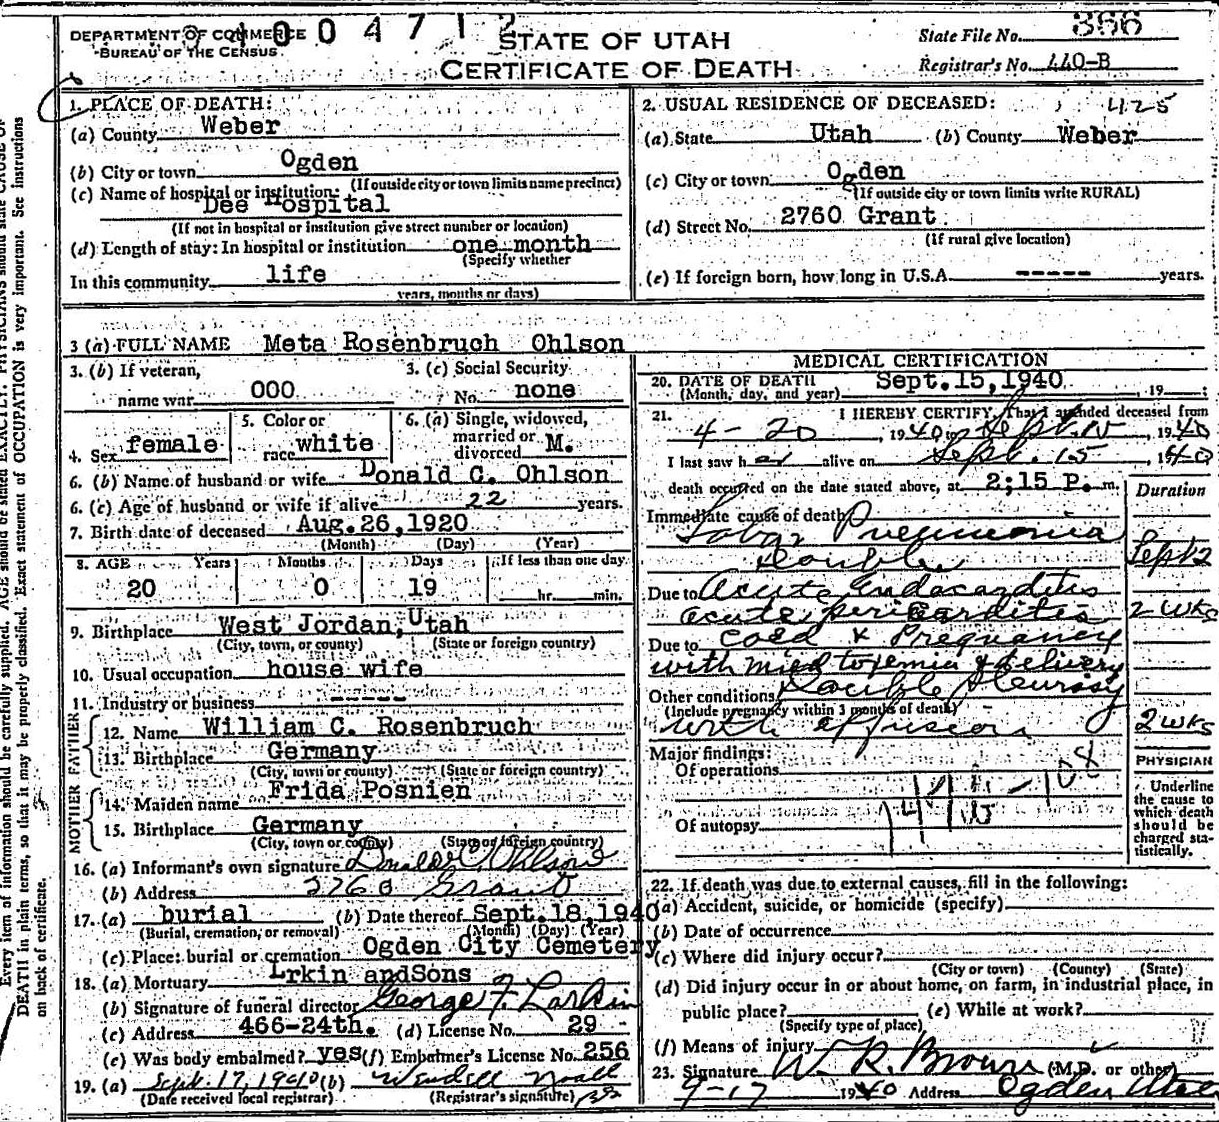 DEPARTMENT OF COMMERCE
BUREAU OF THE CENSUS
STATE OF UTAH
CERTIFICATE OF DEATH
State File No. 366
Registrar's No. 440-B
1. PLACE OF DEATH:
(a) County Weber
(b) City or town Ogden
(If outside city or town limits name precinct)
(c) Name of hospital or institution:
Dee Hospital
(If not in hospital or institution give street number or location)
(d) Length of stay: In hospital or institution one month
(Specify whether
In this community life
years, months or days)
2. USUAL RESIDENCE OF DECEASED: 425
(a) State Utah (b) County Weber
(c) City or town Ogden
(If outside city or town limits write RURAL)
(d) Street No. 2760 Grant
(If rural give location)
(e) If foreign born, how long in U.S.A. ----- years.
3 (a) FULL NAME Meta Rosenbruch Ohlson
3. (b) If veteran,
name war 000
3. (c) Social Security
No. none
4. Sex female
5. Color or
race white
6. (a) Single, widowed,
married or
divorced M.
6. (b) Name of husband or wife Donald C. Ohlson
6. (c) Age of husband or wife if alive 22 years.
7. Birth date of deceased Aug.26,1920
(Month) (Day) (Year)
8. AGE Years Months Days If less than one day
20 0 19 hr. min.
9. Birthplace West Jordan, Utah
(City, town, or county) (State or foreign country)
10. Usual occupation house wife
11. Industry or business -----
FATHER
12. Name William C. Rosenbruch
13. Birthplace Germany
(City, town or county) (State or foreign country)
MOTHER
14. Maiden name Frida Posnien
15. Birthplace Germany
(City, town or county) (State or foreign country)
16. (a) Informant's own signature Donald C. Ohlson
(b) Address 2760 Grant
17. (a) burial (b) Date thereof Sept.18,1940
(Burial, cremation, or removal) (Month) (Day) (Year)
(c) Place: burial or cremation Ogden City Cemetery
18. (a) Mortuary Lrkin andSons
(b) Signature of funeral director George F. Larkin
(c) Address 466-24th. (d) License No. 29
(e) Was body embalmed? yes (f) Embalmer's License No. 256
19. (a) Sept. 17, 1940 (b) Wendell Noall
(Date received local registrar) (Registrar's signature)
MEDICAL CERTIFICATION
20. DATE OF DEATH Sept.15,1940 , 19 :
(Month, day, and year)
21. I HEREBY CERTIFY, That I attended deceased from
4-20 , 1940 to Sept. 15 , 1940
I last saw her alive on Sept. 15 1940
death occurred on the date stated above, at 2;15 P. m.
Duration
Immediate cause of death
Lobar Pneumonia
Double Sept 12
Due to Acute Endocarditis
acute pericarditis 2 wks
Due to Cold & Pregnancy
with mild toxemia & delivery
Other conditions Double Pleurisy
(Include pregnancy within 3 months of death)
with effusion 2 wks
Major findings:
Of operations
Of autopsy
PHYSICIAN
Underline
the cause to
which death
should be
charged sta-
tistically.
22. If death was due to external causes, fill in the following:
(a) Accident, suicide, or homicide (specify)
(b) Date of occurrence
(c) Where did injury occur?
(City or town) (County) (State)
(d) Did injury occur in or about home, on farm, in industrial place, in
public place? (e) While at work?
(Specify type of place)
(f) Means of injury
23. Signature W. R. Brown (M.D. or other)
9-17 1940 Address Ogden Utah
Every item of information should be carefully supplied. AGE should be stated EXACTLY. PHYSICIANS should state CAUSE OF
DEATH in plain terms, so that it may be properly classified. Exact statement of OCCUPATION is very important. See instructions
on back of certificate.